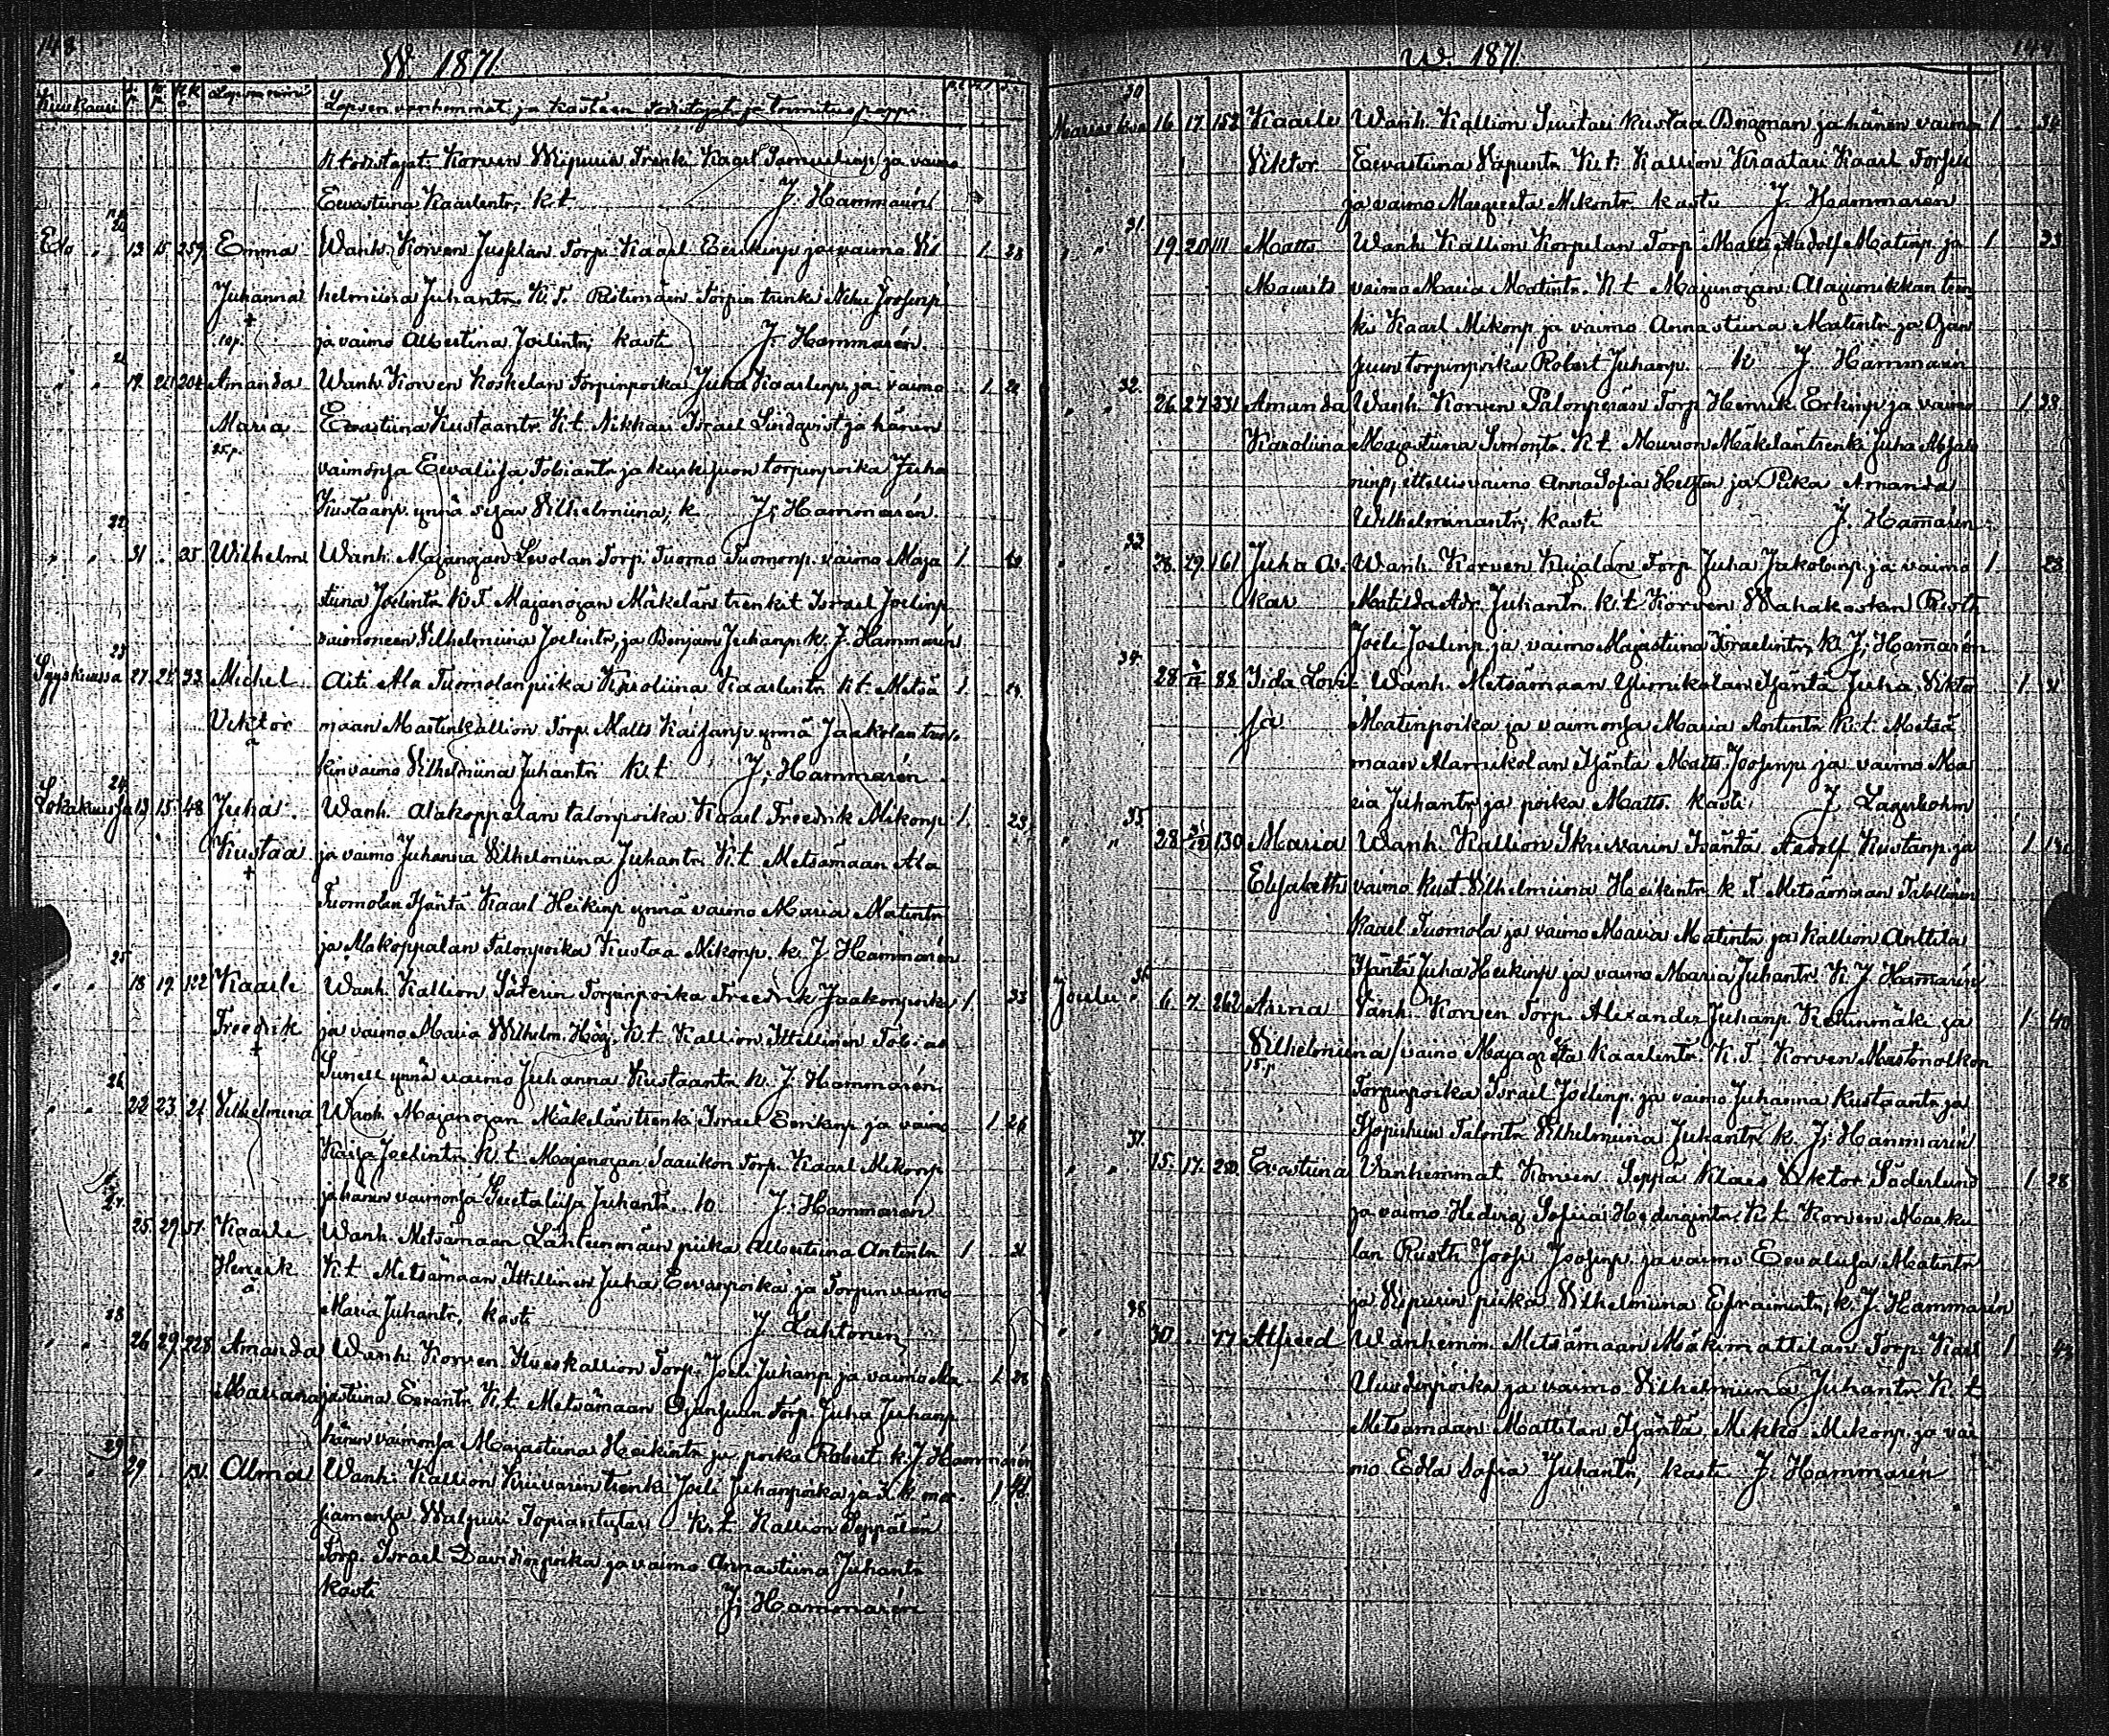 148
W 1871
Kuukausi Lapsen nimi Lapsen vanhemmat ja kasteen todistajat ja toimitus pappi
K todistajat Korven Wipurin Trenki Kaarl Samuelinp. ja vaimo
Eevastiina Kaarlentr. k.t J. Hammarén
20
Elo " 13 15 259 Emma Wanh. Korven Torp. Kaarl Eerikinp. ja vaimo Vil 1 28
Juhanna helmiina Juhantr. K.T. Ristimäen Torpin trenki Joosenp.
+
10p. ja vaimo Albertina Joelintr. kasti J. Hammarén.
21
" " 19 20 204 Amanda Wanh. Korven Koskelan Torpinpoika Juha Kaarlenp. ja vaimo 1 21
Maria Eevastiina Kustaantr. K.t. Nikkari Israel Lindqvist ja hänen
25p.
vaimonsa Eevaliisa Tobiantr. ja torpinpoika Juha
Kustaanp. ynnä Vilhelmiina, k. J. Hammarén.
22
" " 31 . 25. Wilhelm Wanh. Majanojan Levolan Torp. Tuomo Tuomonp. vaimo Maja 1
stiina Joelintr. K.T. Majanojan Mäkelän trenkit Israel Joelinp.
vaimoneen Vilhelmiina Joelintr. ja Benjam Juhanp. k. J. Hammarén
23
Syyskuussa 27. 28. 33. Michel Äiti Ala Tuomolan piika Karoliina Kaarlentr. K.t. Metsä 1.
Viktor maan Mastenkallion Torp. Matts Kaisanp. ynnä Jaakolan tren
ä
kin vaimo Vilhelmiina Juhantr. K.t J. Hammarén
24
Lokakuussa 13 15 48 Juha Wanh. Alakoppalan talonpoika Kaarl Freedrik Mikonp. 1. 23
Kustaa ja vaimo Juhanna Vilhelmiina Juhantr. K.t. Metsämaan Ala
+
Tuomolan Isäntä Kaarl Heikinp. ynnä vaimo Maria Matintr.
ja Alakoppalan Talonpoika Kustaa Mikonp. k. J. Hammarén
25
" " 18 19 122 Kaarle Wanh. Kallion Säterin Torpinpoika Freedrik Jaakonpoika 1. 33
Freedrik ja vaimo Maria Wilhelm. Hög. K.t. Kallion Ittellinen Tobias
+
Sunell ynnä vaimo Juhanna Kustaantr. k. J. Hammarén.
26
" " 22 23 21 Vilhelmina Wanh. Majanojan Mäkelän trenki Israel Eerikinp. ja vaimo 1 26
Kaisa Joelintr. K.t. Majanojan Saarikon Torp. Kaarl Mikonp.
ja hänen vaimonsa Juhantr. k J. Hammarén
27.
25. 29 51 Kaarle Wanh. Metsämaan Lähteenmäen piika Albertiina Antintr. 1
Henrik K.t Metsämaan Ittellinen Juha Eevanpoika ja Torpin vaimo
ä
Maria Juhantr. kasti J. Lahtonen
28
" " 26 29 228 Amanda Wanh. Korven Torp. Joeli Juhanp. ja vaimo Ma 1 28
Mariana jastiina Eevantr. K.t. Metsämaan Ojansuun Torp. Juha Juhanp.
hänen vaimonsa Majastiina Heikintr. ja poika Robert. k. J. Hammarén
29
" " 29 Alma Wanh. Kallion Trenki Joeli Juhanpoika ja 1 42
Walpuri K.t Kallion Seppälän
Torp. Israel Davidinpoika ja vaimo Annastiina Juhantr.
kasti J. Hammarén
149
W. 1871
30
Marraskuu 16 17. 152 Kaarle Wanh. Kallion Suutari Kustaa Bergman ja hänen vaimo 1
Viktor Eevastiina K.t. Kallion Kraatari Kaarl Forsell
ja vaimo Margreeta Mikontr. kasti J. Hammarén
31.
" " 19. 20 111 Matts Wanh. Kallion Korpelan Torp. Matti Aadolf Matinp. ja 1 23
Maurits vaimo Maria Matintr. K.t Majanojan Alajunikkan tren
ki Kaarl Mikonp. ja vaimo Annastiina Matintr. ja Ojan
suun torpinpoika Robert Juhanp. k J. Hammarén
32.
" " 26. 27 231 Amanda Wanh. Korven Palonperän Torp. Henrik Erkinp. ja vaimo 1 38
Karoliina Majastiina Simontr. K.t. Murron Mäkelän trenki Juha Absalo
ninp, ittellisvaimo Anna Sofia ja Piika Amanda
Wilhelminantr. kasti J. Hammarén
33.
" " 28. 29. 161 Juha Os- Wanh. Korven Kujalan Torp. Juha Jakobinp. ja vaimo 1. 28
kar Matilda Adr. Juhantr. K.t. Korven Wahakosken Rusth.
Joeli Joelinp. ja vaimo Majastiina Israelintr. k. J. Hammarén
34.
28 88 Iida Lovi- Wanh. Metsämaan Ylimikolan Isäntä Juha Viktor 1
sa Matinpoika ja vaimonsa Maria Antintr. K.t. Metsä
maan Alamikolan Isäntä Matts Joosenp. ja vaimo Ma
ria Juhantr. ja poika Matts. kasti J. Lagerbohm
35.
" " 28 130 Maria Wanh. Kallion Skrivarin Isäntä Aadolf Kustanp. ja 1
Elisabeths vaimo Kust. Vilhelmiina Heikintr. K.T. Metsämaan Talollinen
Kaarl Tuomola ja vaimo Maria Matintr. ja Kallion Anttila
Isäntä Juha Heikinp. ja vaimo Maria Juhantr. K. J. Hammarén
36.
Joulu " 6 7. 262 Anna Vanh. Korven Torp. Alexander Juhanp. Ketunmäki ja 1 40
Vilhelmiina vaimo Majagreta Kaarlentr. K.T. Korven
15.p
Torpinpoika Israel Joelinp. ja vaimo Juhanna Kustaantr. ja
Talontr. Vilhelmiina Juhantr. k. J. Hammarén
37.
" " 15. 17. 250 Evastiina Vanhemmat Korven Seppä Klaes Viktor Söderlund 1 28
ja vaimo Hedvig Sofiia Hedvigintr. K.t. Korven Marku
lan Rusth. Joosep Joosenp. ja vaimo Eevaliisa Matintr.
ja Vipurin piika Vilhelmiina Efraimintr. k. J. Hammarén
38
" " 30 . 77 Alfred Wanhemm. Metsämaan Mäkimattilan Torp. Karl 1 43
Uuvdenpoika ja vaimo Vilhelmiina Juhantr. K.t.
Metsämaan Mattilan Isäntä Mikko Mikonp. ja vai
mo Edla Sofia Juhantr, kasti J. Hammarén